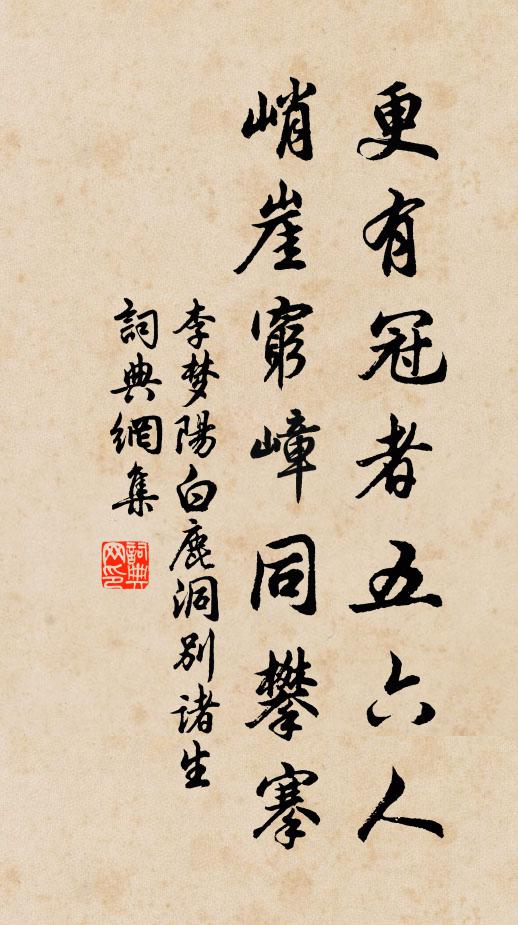 更有冠者五六人
峭崖窮嶂同攀搴
李梦陽白鹿洞别诸生
詞典網集
詞典
网印